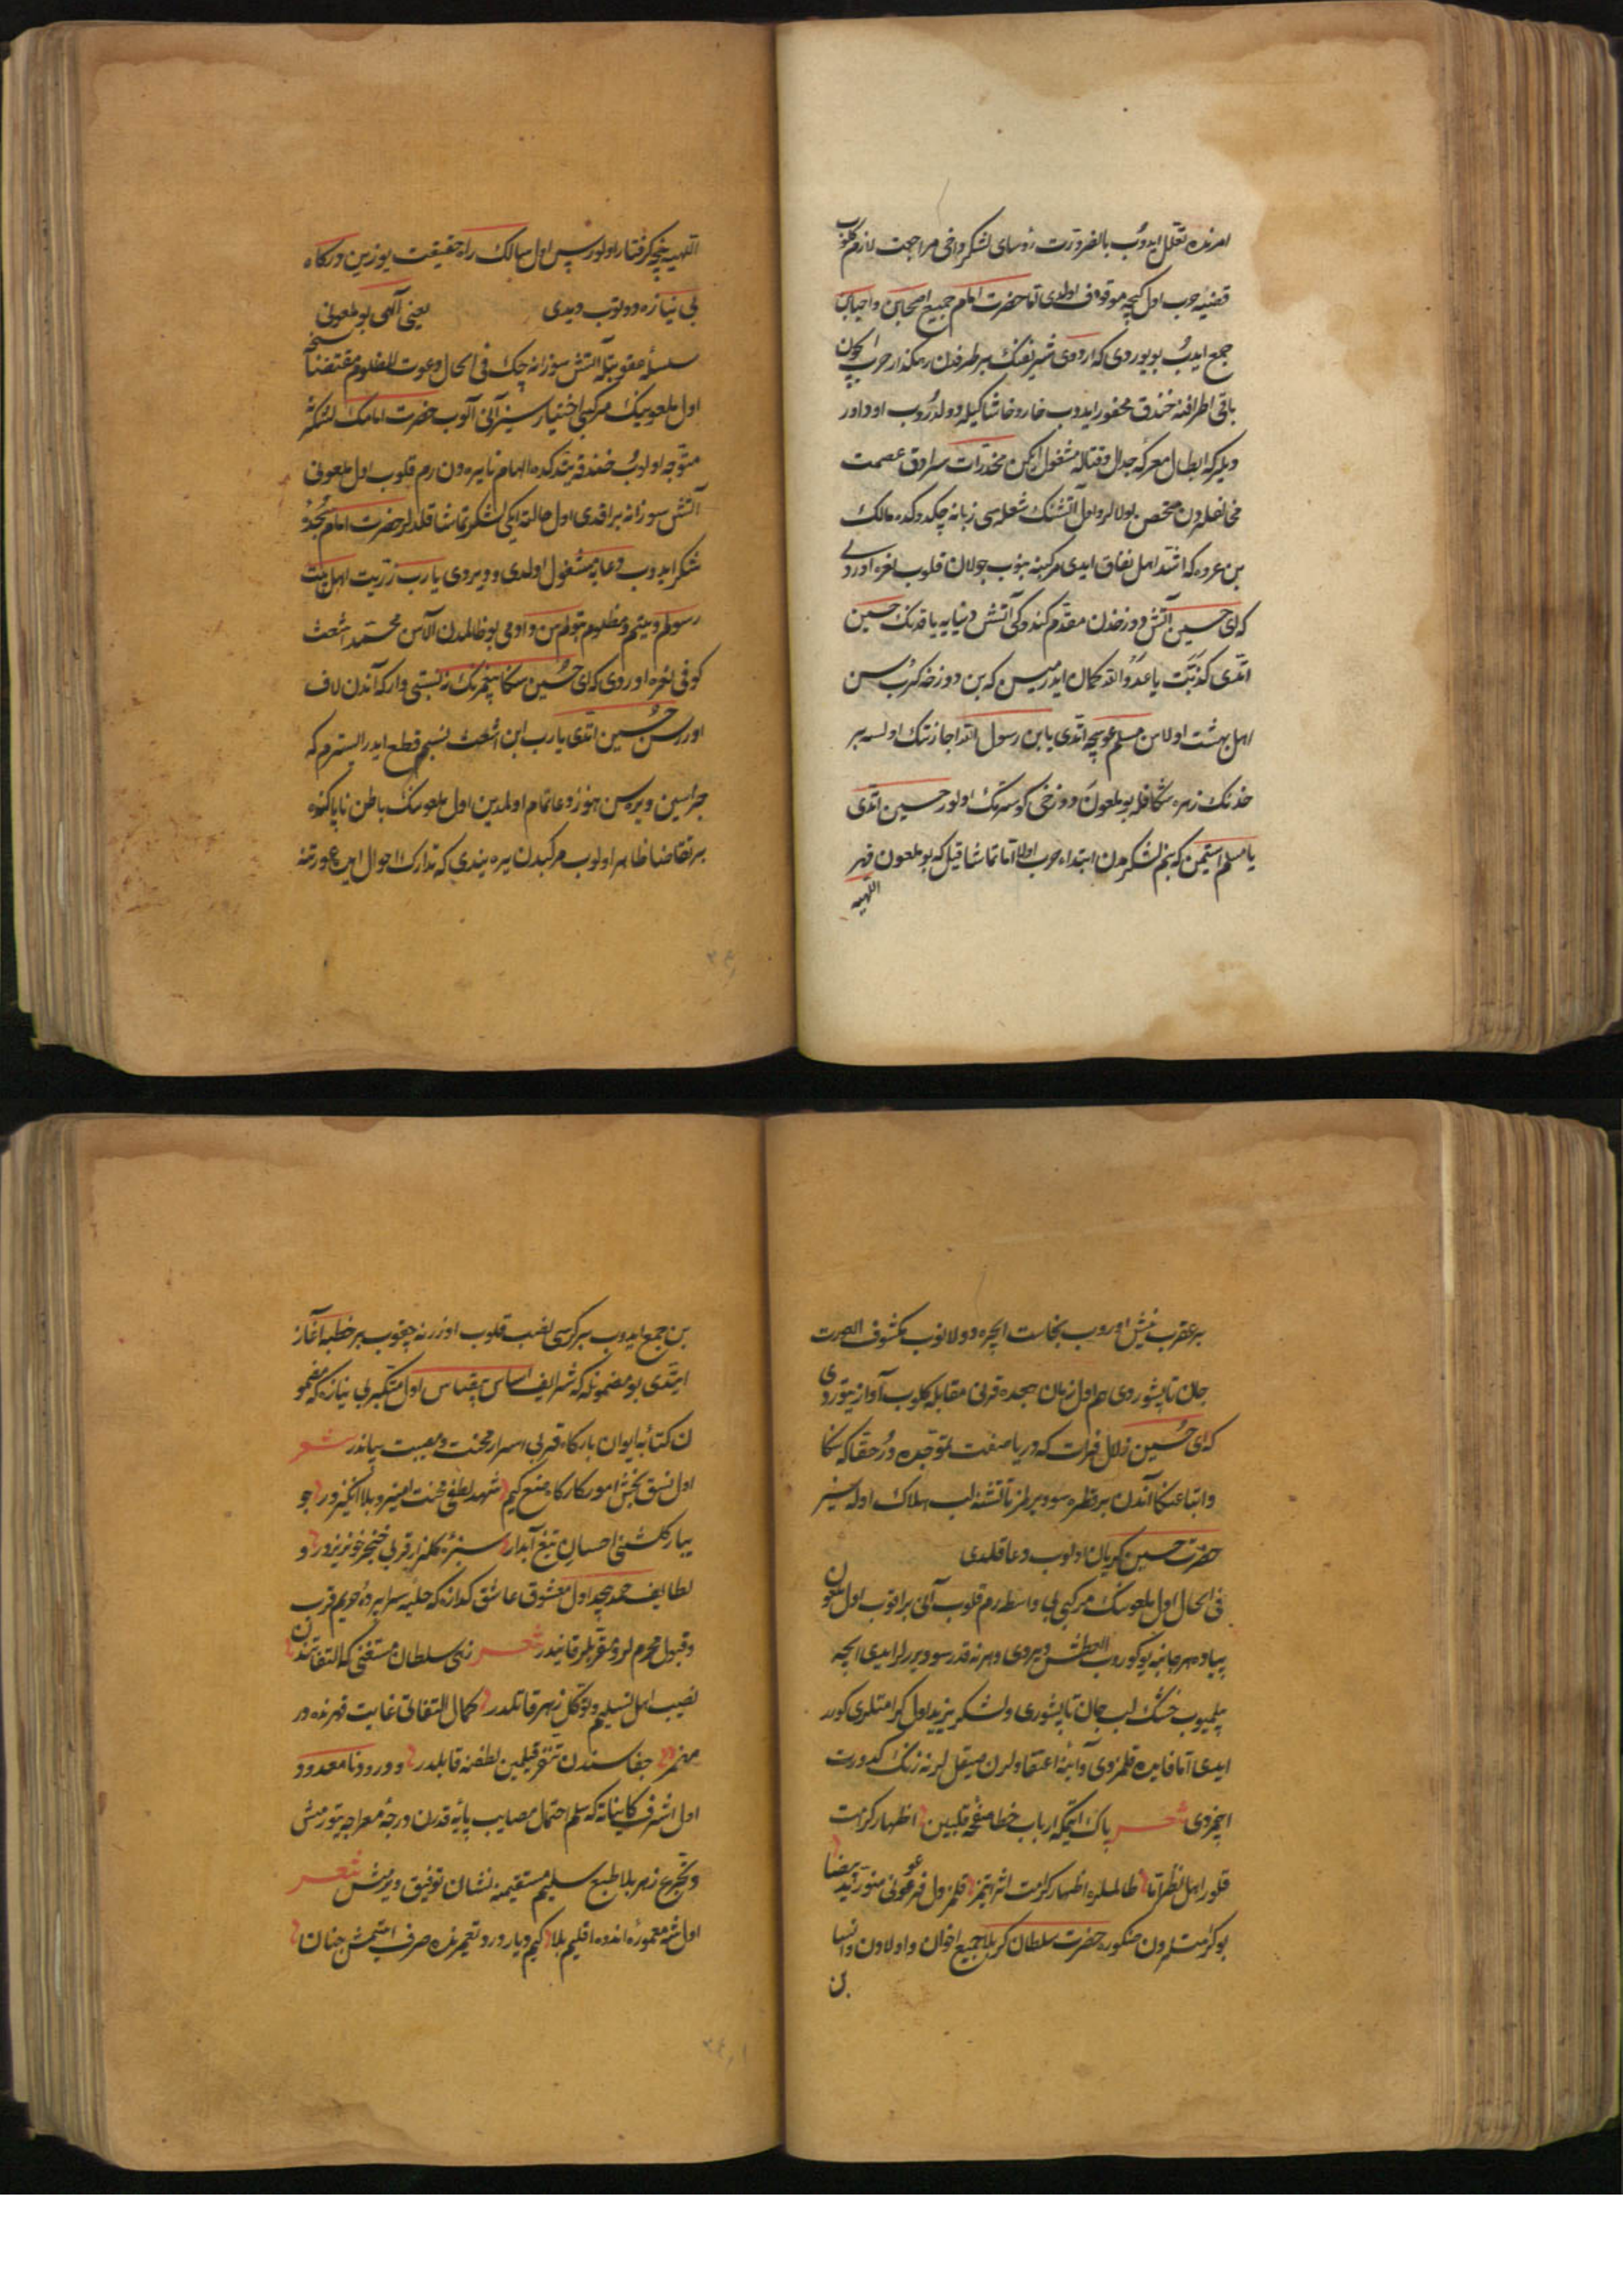 امرنده تعلل ایدوب بالضرورت رؤسای لشکر داخی مراجعت لازم کلوب
قضیهٔ حرب اول کیچه موقوف اولدی اما حضرت امام جمیع اصحابن و احبابن
جمع ایدب بویوردی که اردوی شریفنک بر طرفدن رهکذار حرب ایچون
باقی اطرافنه خندق محفور ایدوب خار و خاشاکیله دولدروب اود اور
دیلر که ابطال معرکه جدال و قتاله مشغول ایکن مخدرات سرادق عصمت
مخالفلردن محصن اولالر و اول آتشنک شعله سی زبانه چکدوکده مالک
بن عروه که اشد اهل نفاق ایدی مرکبنه بنوب جولان قلوب نعره اوردی
که ای حسین آتش دوزخدن مقدم کندوکی آتش دنیایه یاقدنک حسین
اتدی کذبت یا عدو الله کمان ایدرمیسن که بن دوزخه کرب سن
اهل بهشت اولاسن مسلم عوسجه اتدی یا بن رسول الله اجازتنک اولسه بر
خدنک زهره شکافله بو ملعون دوزخی کوسترنک اولور حسین اتدی
یا مسلم استیمن که بنم لشکرمدن ابتداء حرب اولا اما تماشا قیل که بو ملعون قهر
الهیه
الهیه یه نیچه کرفتار اولور پس اول سالک راه حقیقت یوزین درکاه
بی نیازه دوندروب دیدی یعنی آلهی بو ملعونی
سلسلهٔ عقوبتله آتش سوزانه چک فی الحال دعوت المظلوم مقتضاسنجه
اول ملعونک مرکبی اختیارسیز آنی آلوب حضرت امامک لشکرنه
متوجه اولوب خندقه یتدکده الهام نایبره دن رم قلوب اول ملعونی
آتش سوزانه براقدی اول حالته ایکی لشکر تماشا قلدیلر حضرت امام سجدهٔ
شکر ایدوب دعایه مشغول اولدی و دیردی یا رب ذریت اهل بیت
رسولم و یتیم و مظلوم بتولم سن دادمی بو ظالمدن آلاسن محمد اشعث
کوفی نعره اوردی که ای حسین سکا پیغمبرنک نه نسبتی وار که آندن لاف
اورسن حسین اتدی یا رب ابن اشعث نسبم قطع ایدر الیسترم که
جزاسین ویره سن هنوز دعا تمام اولمدین اول ملعونک باطن ناپاکنده
بر تقاضا ظاهر اولوب مرکبدن یره یندی که تدارک احوال ایده عورتنه
بر عقرب نیش اوروب نجاست ایچره دولانوب مکشوف العورت
جان تاپشوردی هم اول زمان جعده قرنی مقابله کلوب آواز یتوردی
که ای حسین زلال فرات که دریا صفت تموجده در حقا که سکا
و اتباعنکا آندن بر قطره سو ویرلمز تا تشنه لب هلاک اوله سیز
حضرت حسین کریان اولوب دعا قلدی
فی الحال اول ملعونک مرکبی بی واسطه رم قلوب آنی براقوب اول ملعون
پیاده هر جانبه یوکوروب العطش دیردی و هر نه قدر سو ویررلر ایدی ایچه
بیلمیوب خشک لب جان تاپشوردی و لشکر یزید اول کرامتلری کورر
ایدی اما فایده قلمزدی و آیینهٔ اعتقادلرن صیقل لر نه زنک کدورت
اچمزدی شعر پاک ایتمکه ارباب خطا صفحهٔ قلبین اظهار کرامت
قلور اهل نظر اما ظالملره اظهار کرامت اثر ایتمز قلمز دل فرعونی منور ید بیضا
بو کرامتلردن صکره حضرت سلطان کربلا جمیع اخوان و اولادن و انسبا
بن
بن جمع ایدوب بر کرسی نصب قلوب اوزرنه چقوب بر خطبه آغاز
ایتدی بو مضمونله که شرایف اساس بیقیاس اول متکبر بی نیازه که مضمو
ن کتابهٔ ایوان بارکاه قربی اسرار محنت و مصیبت بیاندر شعر
اول نسق بخش امور کارکاه صنع کیم شهد لطفی محنت امیز و بلا انکیزدر جو
یبار کلشن احسان تیغ آبدار سبزهٔ کلزار قربی خنجر خونریزدر و
لطایف حمد بیحد اول معشوق عاشق کدازه که حلیهٔ سراپردهٔ حریم قرب
و قبول محرم لر و مقربلر قانیدر شعر زهی سلطان مستغنی که التفاتندن
نصیب اهل تسلیم و توکل زهر قاتلدر کمال التفاتی غایت قهرنده در
مضمر جفاسندن تنفر قیلمین لطفنه قابلدر و درود نامعدود
اول اشرف کایناته که سلم احتمال مصایب پایهٔ قدرن درجهٔ معراجه یتورمش
و تجرع زهر بلا طبع سلیم مستقیمنه نشان توفیق ویرمش شعر
اول شه معمورهٔ اندوه اقلیم بلا کیم دیار درد تعمیرنده صرف ایتمش جنان